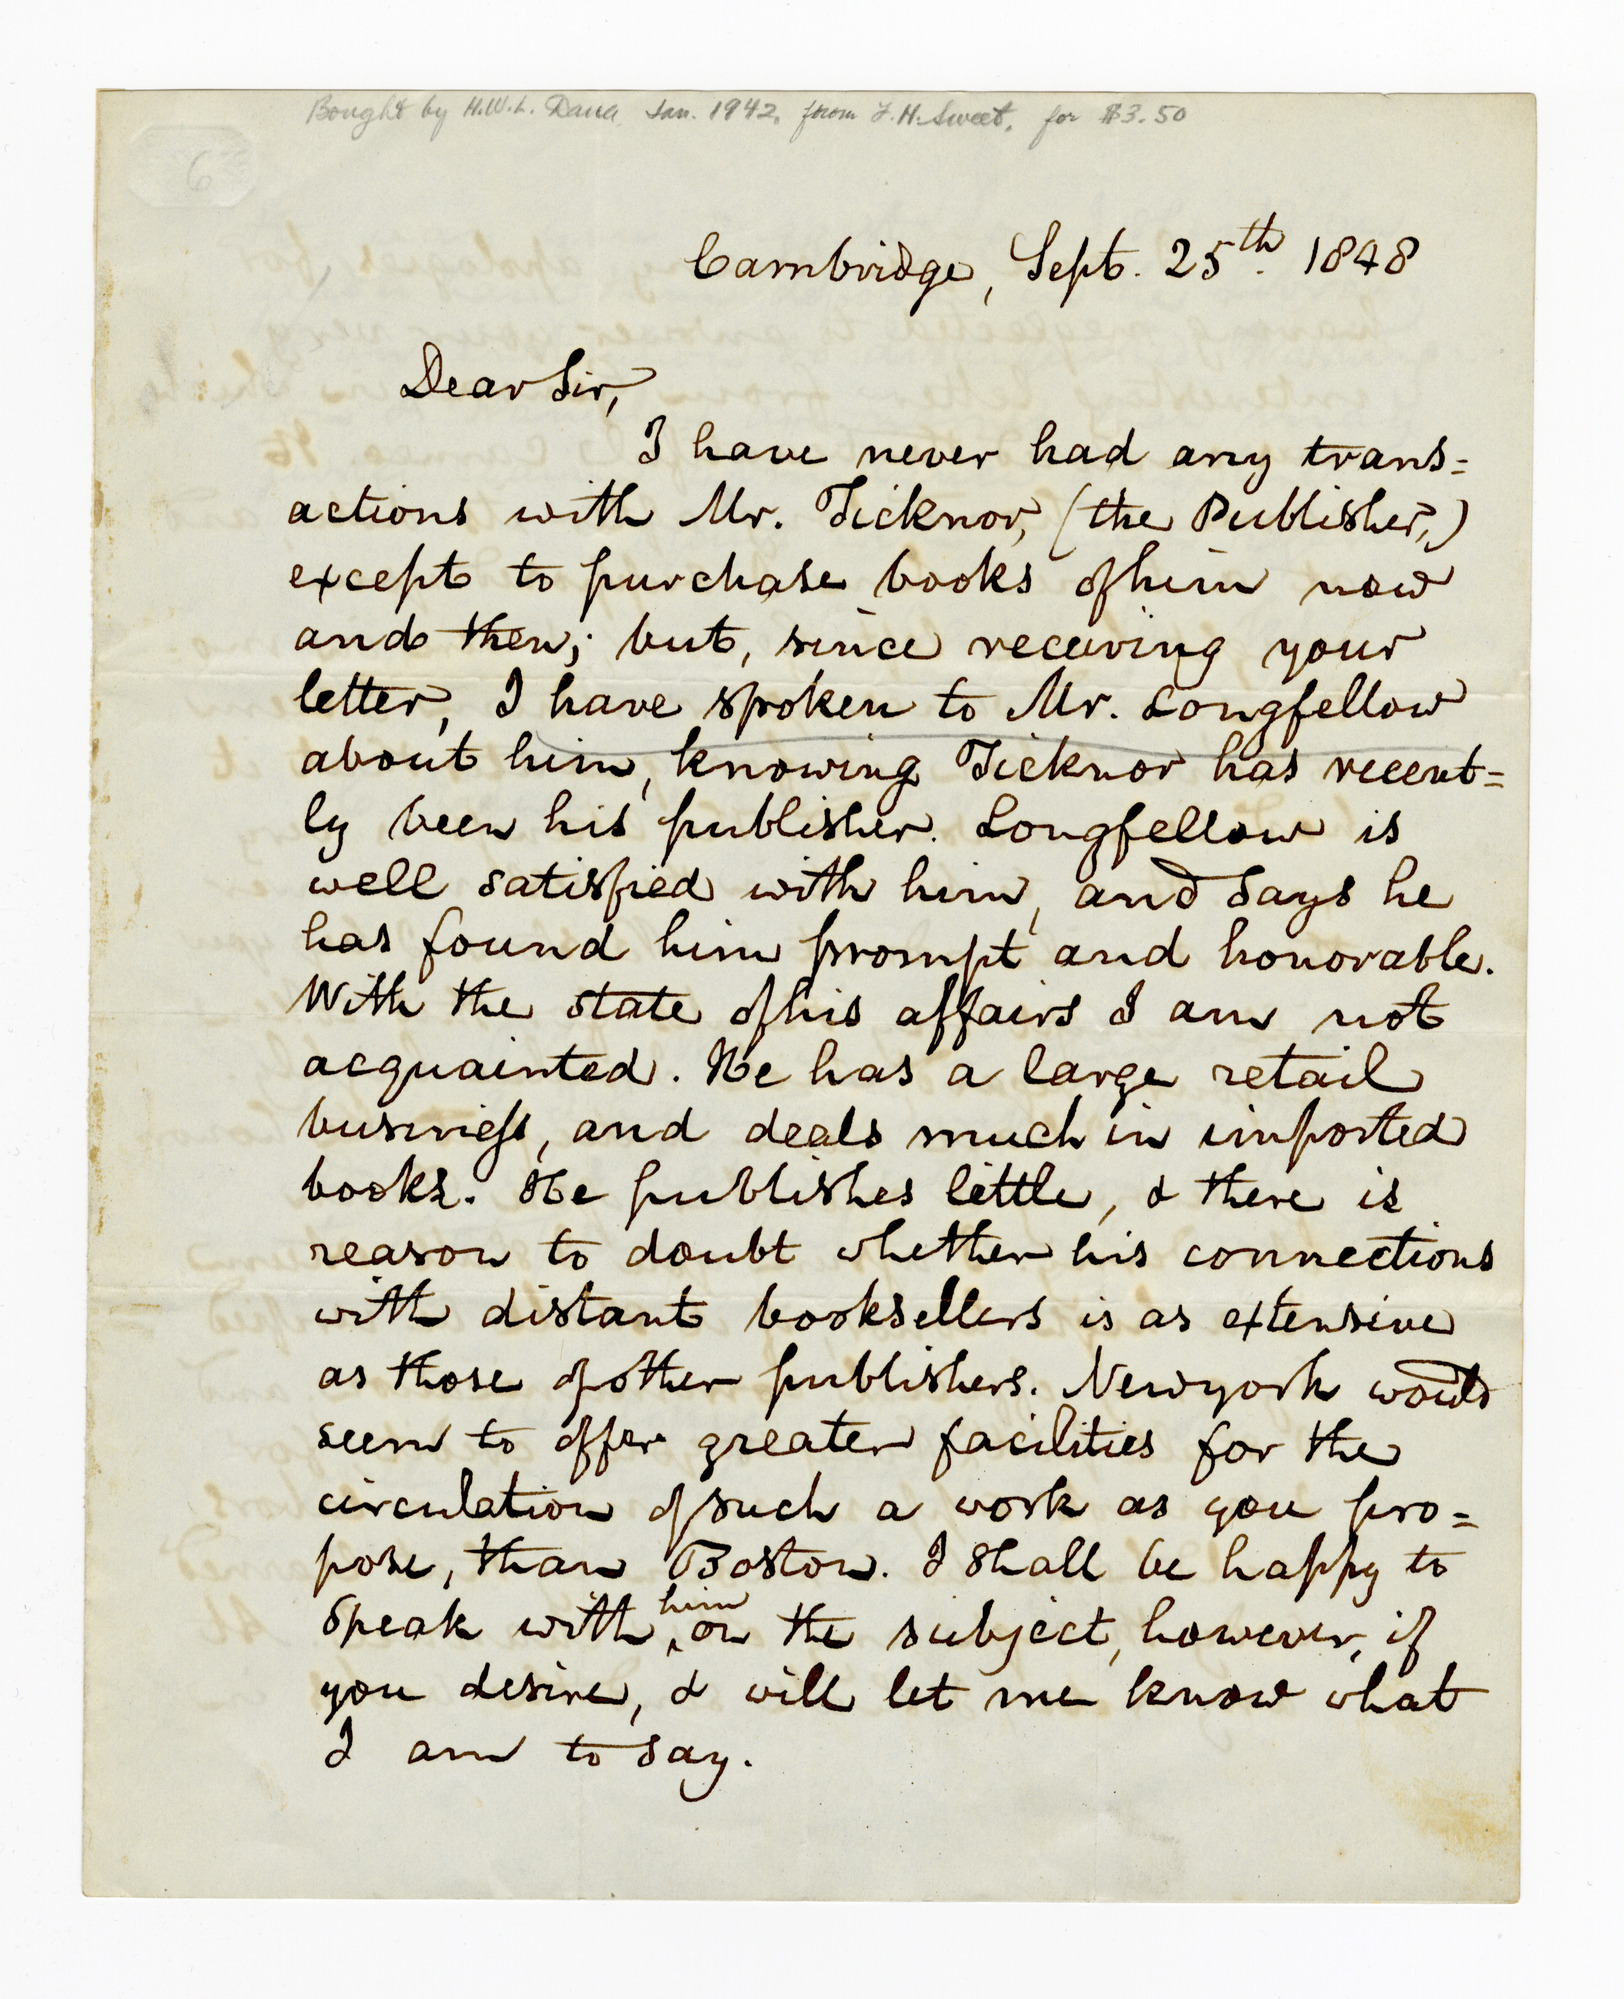 Bought by H.W.L. Dana Jan. 1942, from F. H. Sweet, for $3.50
6
Cambridge, Sept. 25th. 1848
Dear Sir,
I have never had any trans=
actions with Mr. Ticknor, (the Publisher,)
except to purchase books of him now
and then; but, since receiving your
letter, I have spoken to Mr. Longfellow
about him, knowing Ticknor has recent=
ly been his publisher. Longfellow is
well satisfied with him, and says he
has found him prompt and honorable.
With the state of his affairs I am not
acquainted. He has a large retail
business, and deals much in imported
books. He publishes little, & there is
reason to doubt whether his connections
with distant booksellers is as extensive
as those of other publishers. Newyork would
seem to offer greater facilities for the
circulation of such a work as you pro=
pose, than Boston. I shall be happy to
speak with ‸him on the subject, however, if
you desire, & will let me know what
I am to say.